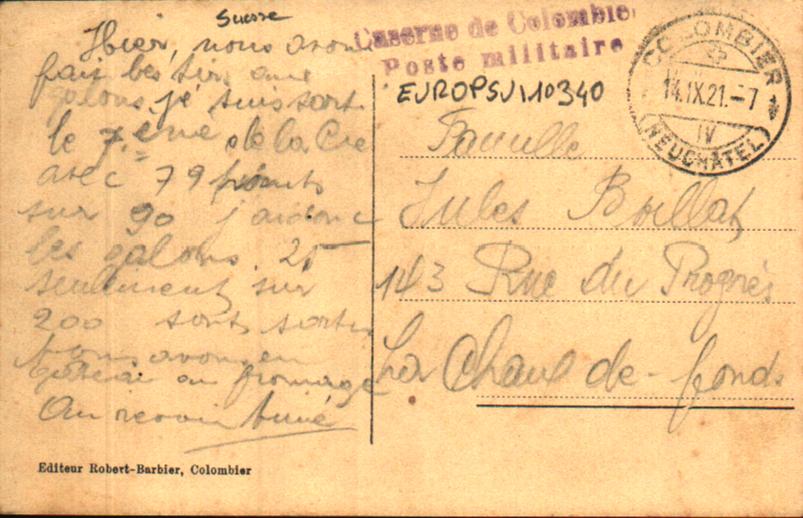 Suisse
Hier, nous avon
fait les tirs aux
galons, je suis sort
le 7.ème de la Cie
avec 79 points
sur 90 j'ai donc
les galons. 25
seulement sur
200 sont sortis
nous avons eu
gâteau au fromage
Au revoir
Caserne de Colombier
Poste militaire
EUROPSUI10340
COLOMBIER
14.IX.21.-7
IV
(NEUCHÂTEL)
Famille
Jules Boillat
143 Rue du Progrès
La Chaux-de-fonds
Editeur Robert-Barbier, Colombier